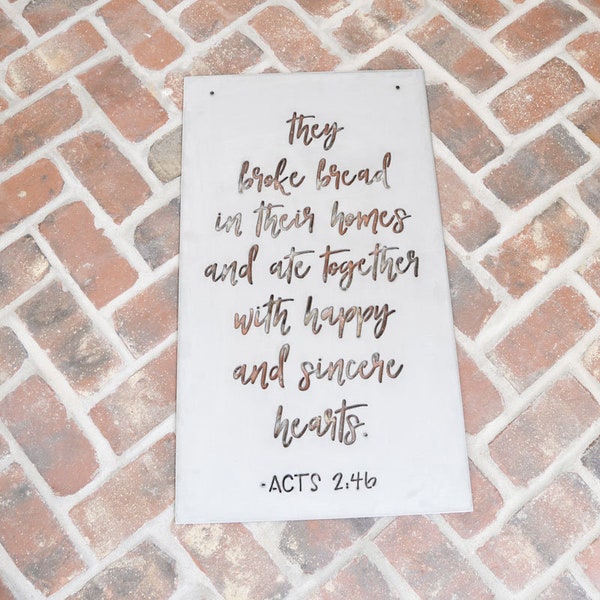 they
broke bread
in their homes
and ate together
with happy
and sincere
hearts.
-ACTS 2:46